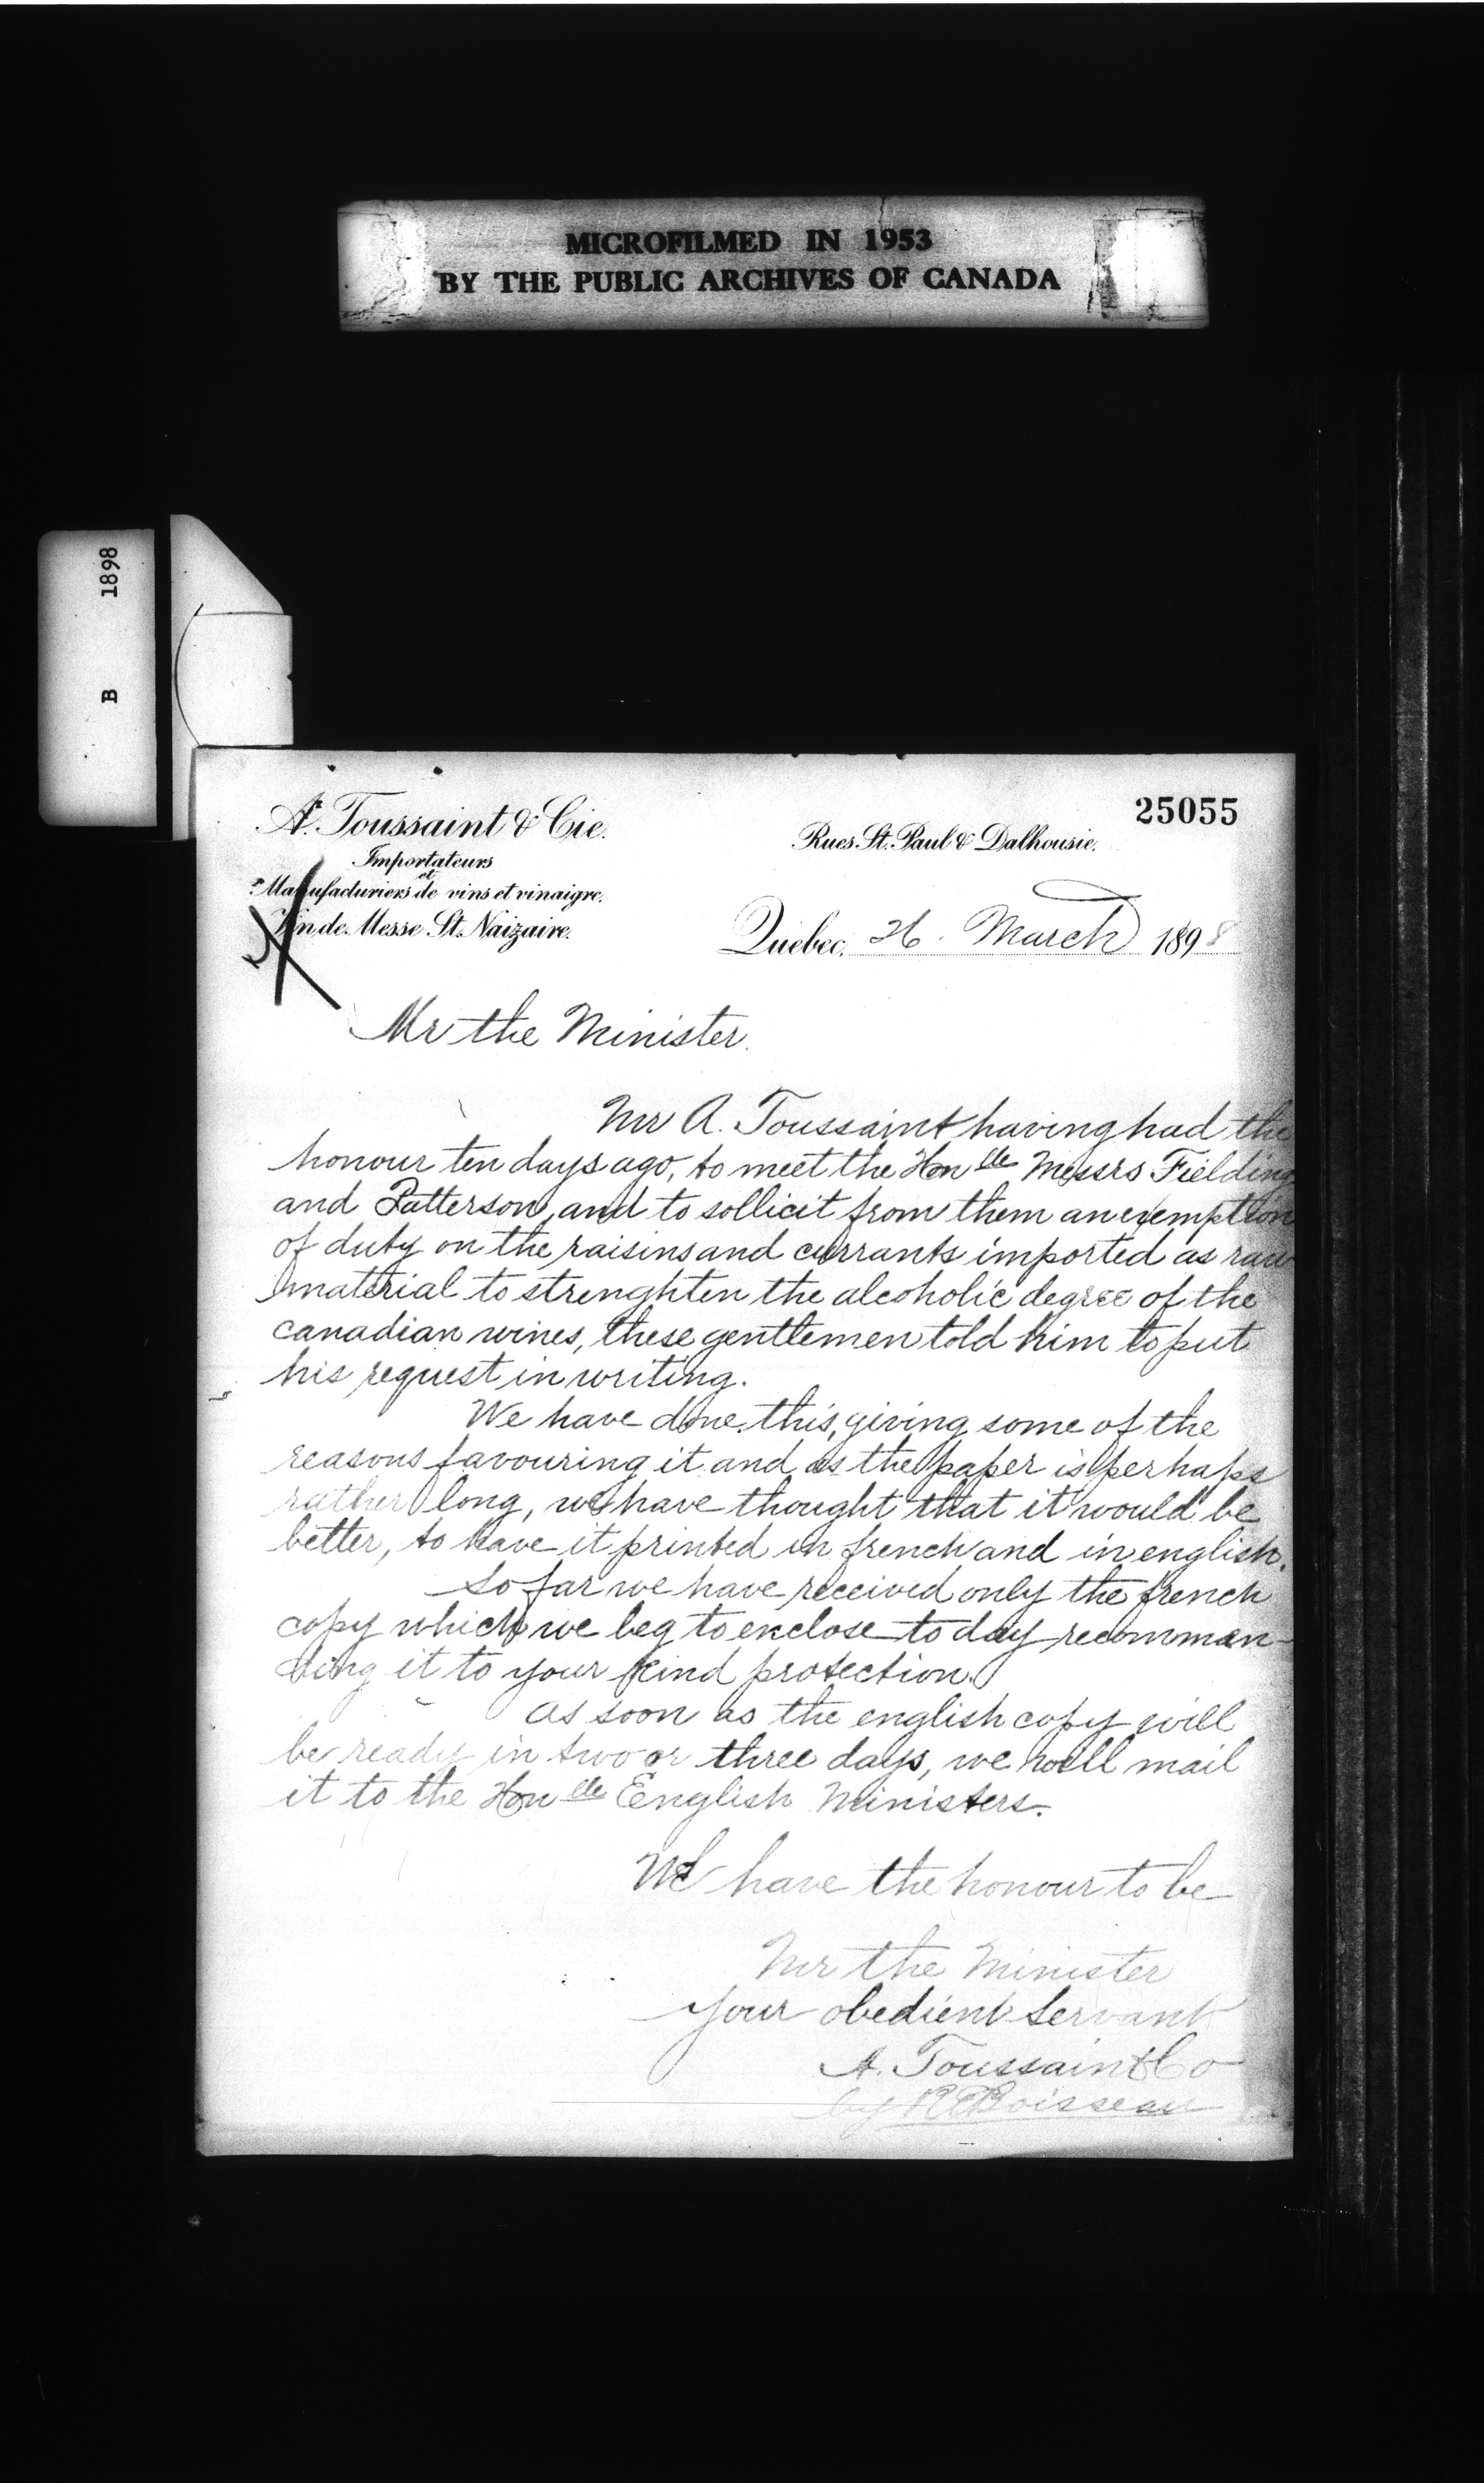 MICROFILMED IN 1953
BY THE PUBLIC ARCHIVES OF CANADA
B 1898
25055
A. Toussaint & Cie.
Importateurs
et
Manufacturiers de vins et vinaigre.
Vin de Messe St. Naizaire.
Rues St. Paul & Dalhousie.
Québec, 26. March 1898
Mr the Minister.
Mr A. Toussaint having had the
honour ten days ago, to meet the Honble Messrs Fielding
and Patterson, and to sollicit from them an exemption
of duty on the raisins and currants imported as raw
material to strenghten the alcoholic degree of the
canadian wines, these gentlemen told him to put
his request in writing.
We have done this, giving some of the
reasons favouring it and as the paper is perhaps
rather long, we have thought that it would be
better, to have it printed in french and in english.
So far we have received only the french
copy which we beg to enclose to day recomman-
ding it to your kind protection.
As soon as the english copy will
be ready in two or three days, we will mail
it to the Honble English Ministers.
We have the honour to be
Mr the Minister
Your obedient Servant
A. Toussaint & Co
by Boisseau